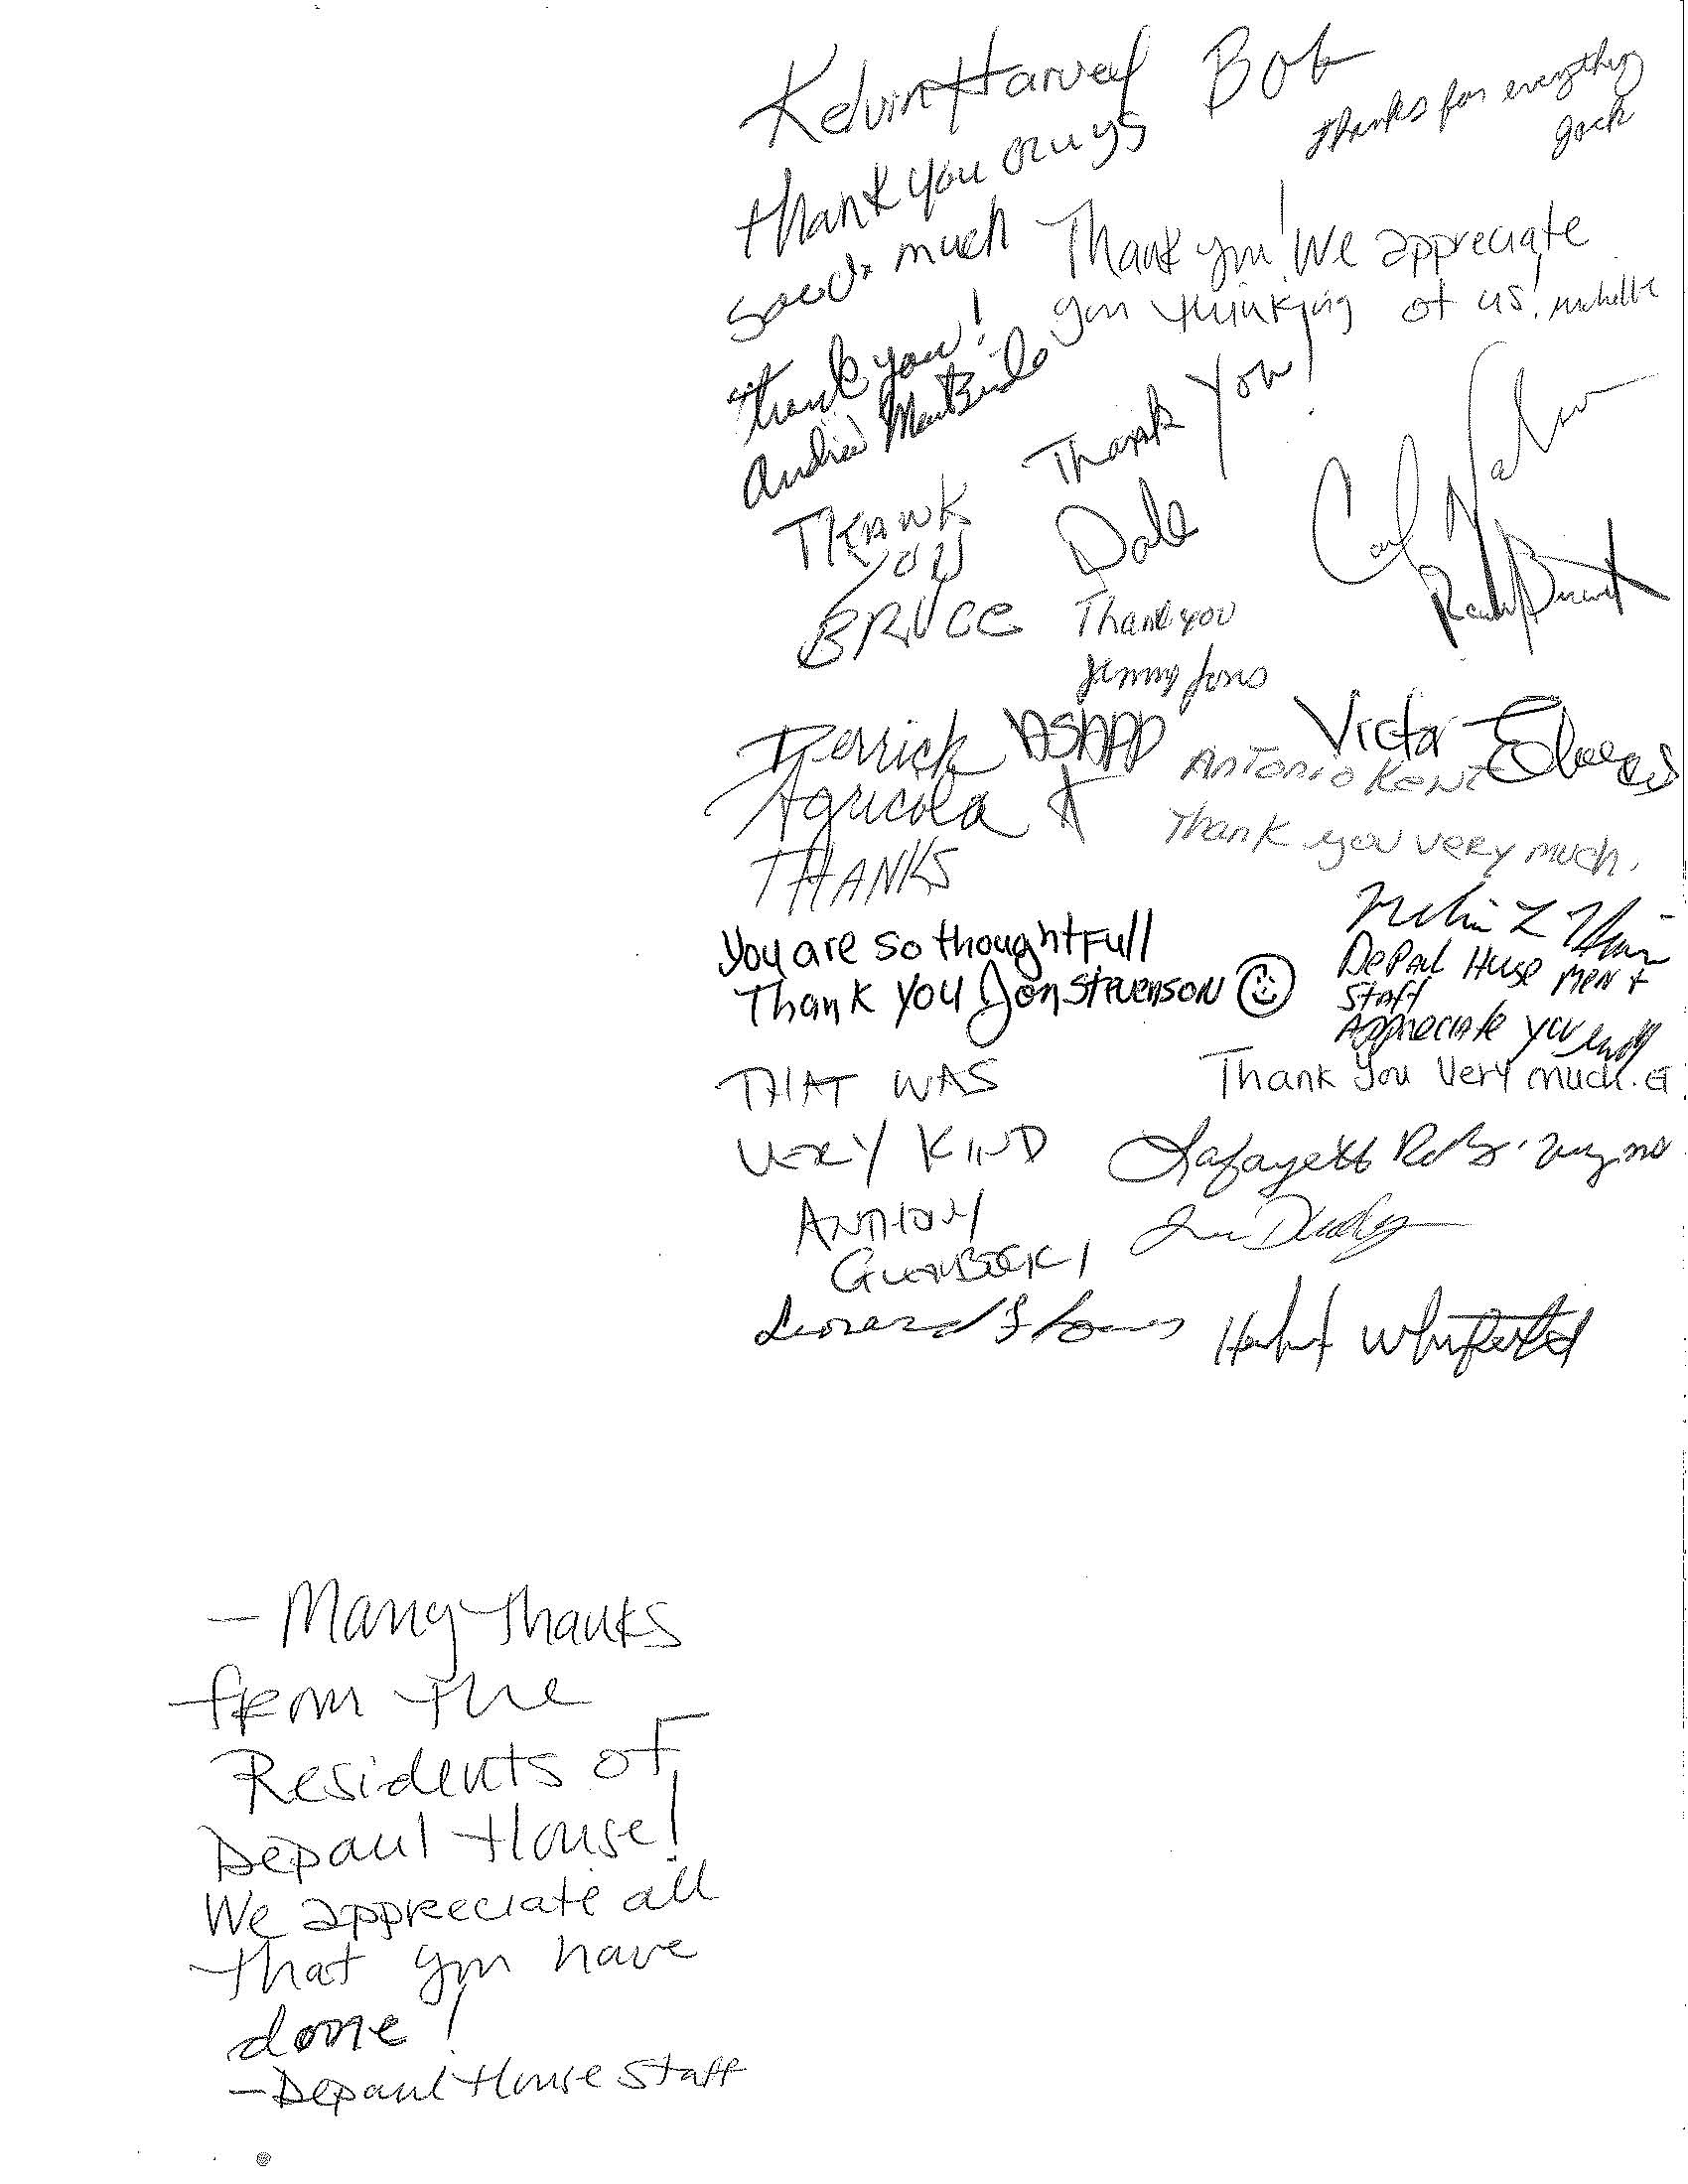 Kelvin Harvey
Bob
thanks for everything
Jack
thank you guys
much
Thank you! We appreciate
you thinking of us! Michelle
thank you!
Thank You!
Dale
THANK
YOU
BRUCE
Carl
Thank you
Jimmy Jones
Derrick
Agricola
THANKS
ASAPP
Victor
ANTONIO KENT
Thank you very much.
You are so thoughtFull
Thank you Jon Stevenson
DePaul House men +
Staff
Appreciate you
Thank you very much. G
THAT WAS
VERY KIND
ANTHONY
Lafayette
Leonard
Herbert Whitfield
- Many thanks
from the
Residents of
Depaul House!
We appreciate all
that you have
done!
- Depaul House Staff